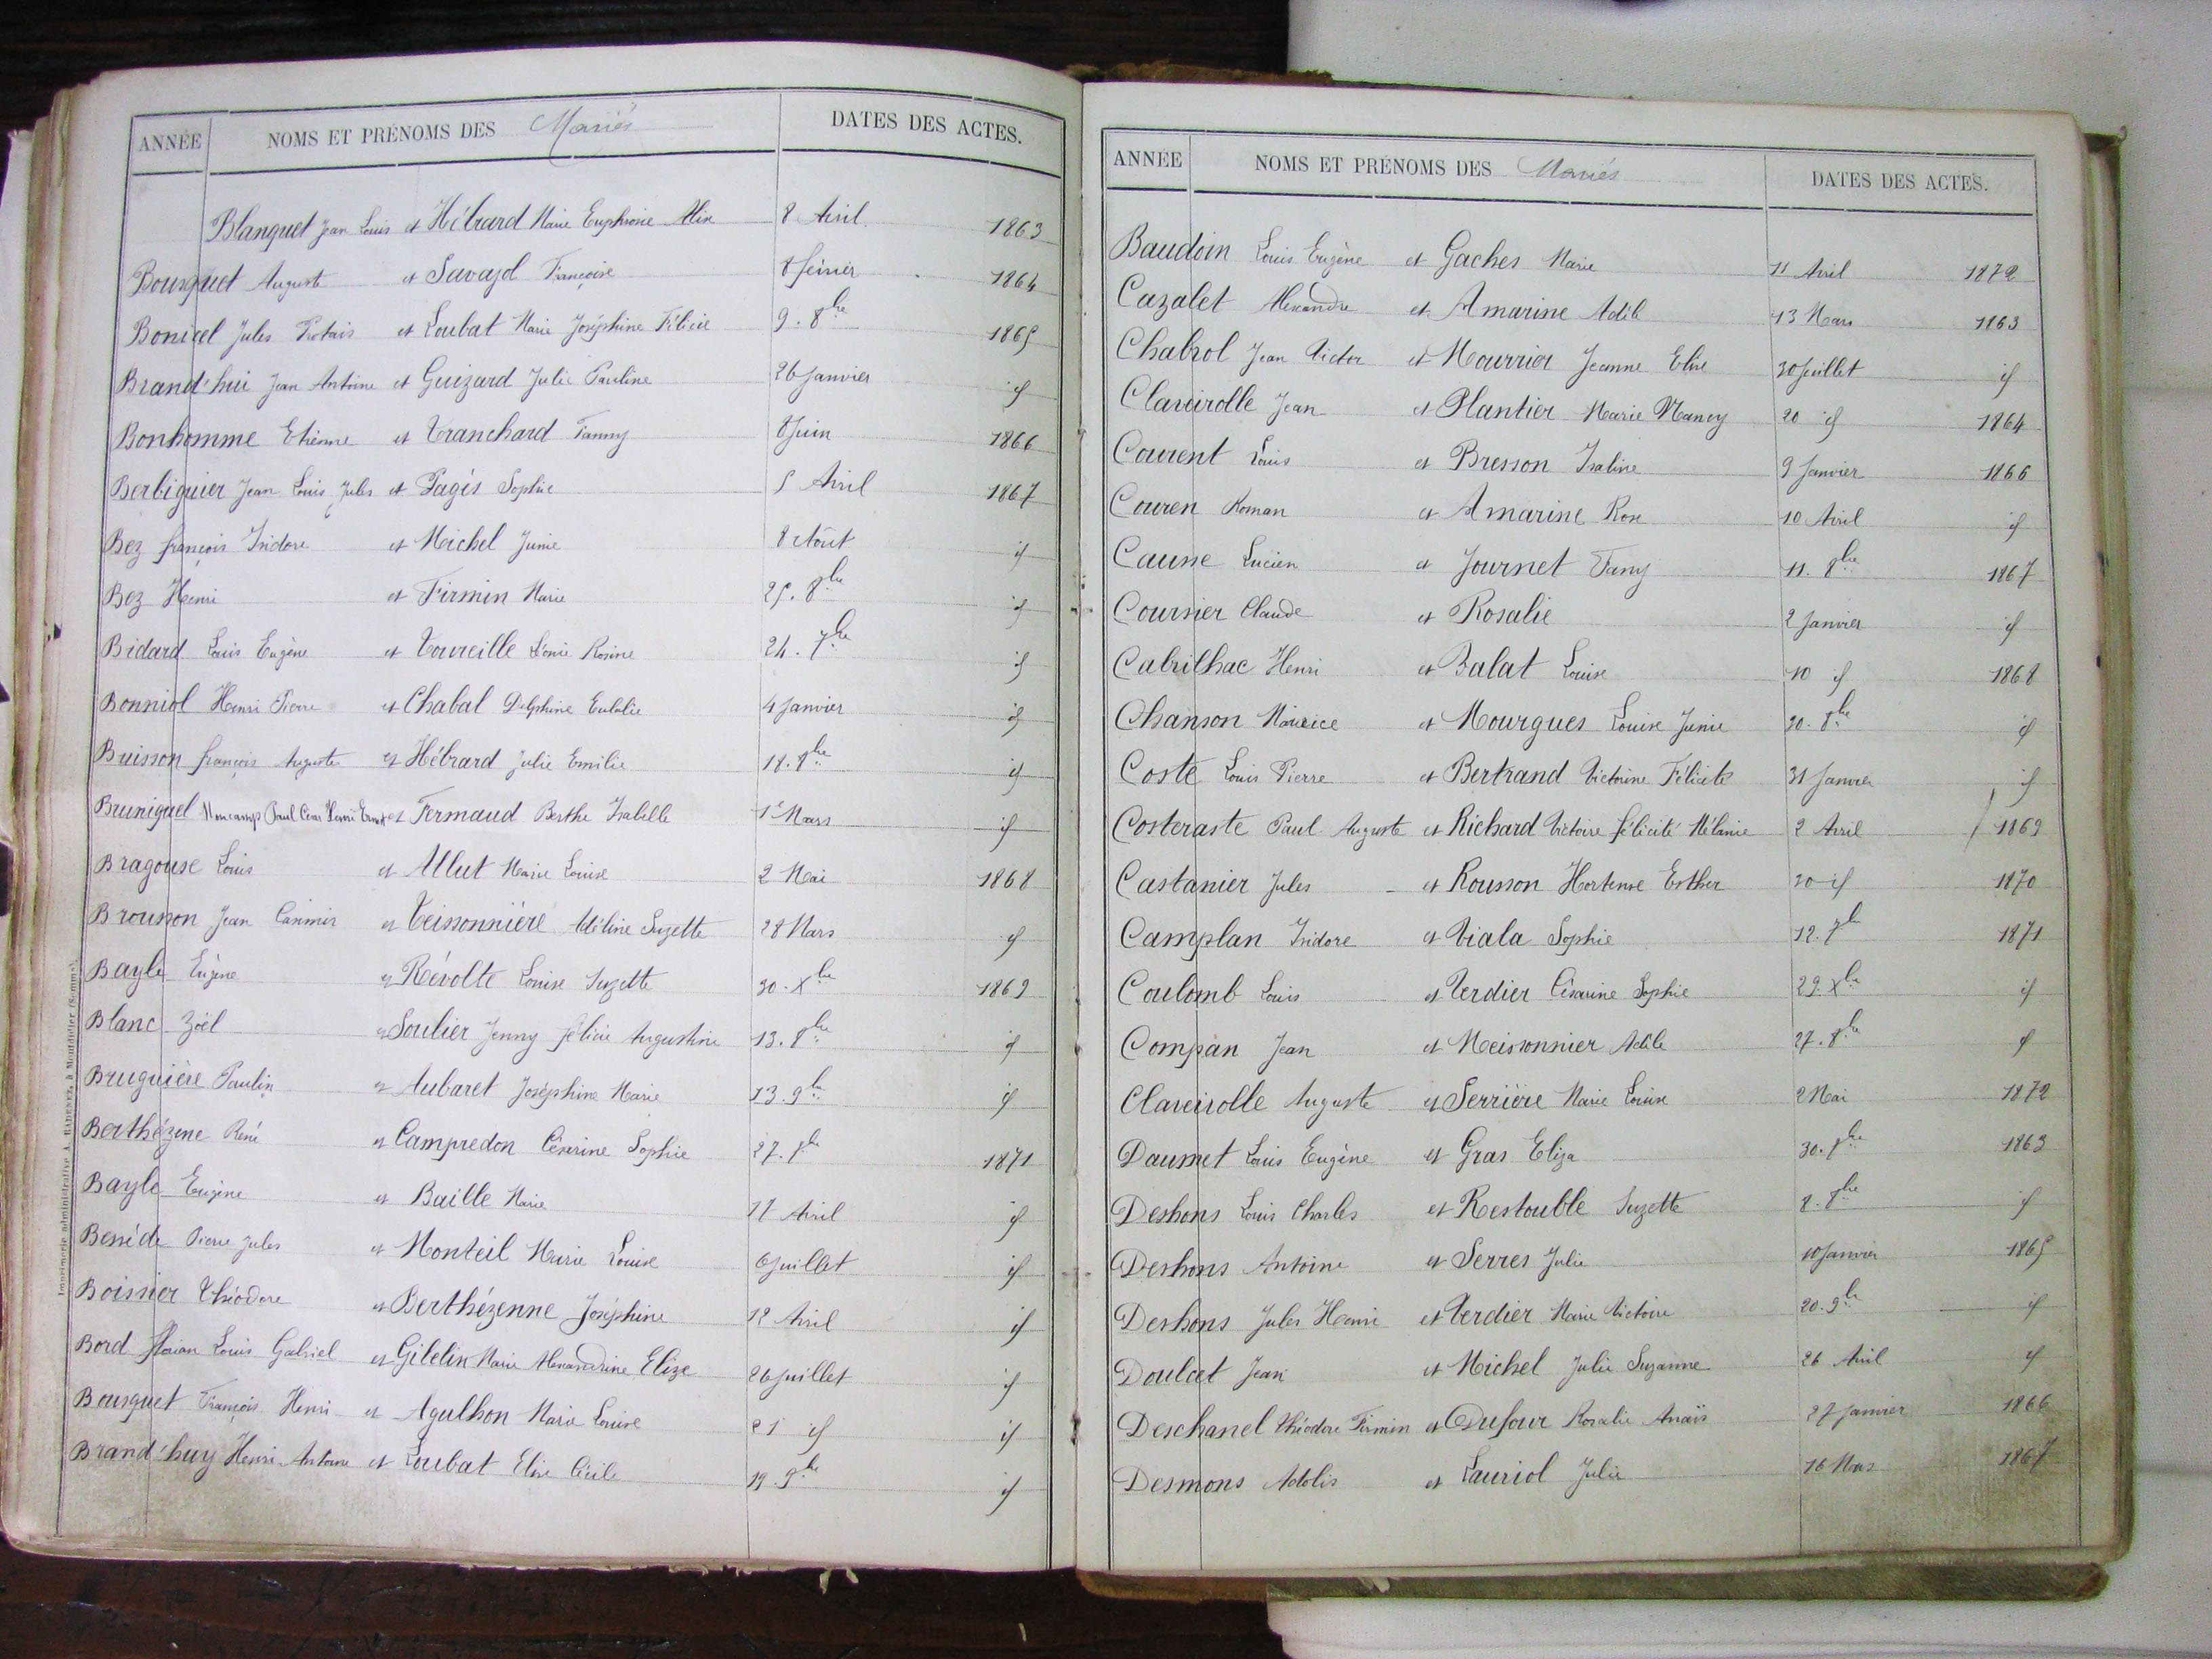 ANNÉE NOMS ET PRÉNOMS DES Mariés DATES DES ACTES.
Blanquet Jean Louis et Hébrard Marie Euphrosie Alix 8 Avril 1863
Bousquet Auguste et Savajol Françoise 8 février 1864
Bonicel Jules Protais et Loubat Marie Joséphine Félicie 9. 8bre 1865
Brand'hui Jean Antoine et Guizard Julie Pauline 26 Janvier id
Bonhomme Etienne et Tranchard Fanny 8 Juin 1866
Berbiguier Jean Louis Jules et Pagès Sophie 5 Avril 1867
Bez françois Isidore et Michel Junie 8 Août id
Bez Henri et Firmin Marie 25. 8bre id
Bidard Louis Eugène et Toureille Léonie Rosine 24. 7bre id
Bonniol Henri Pierre et Chabal Delphine Eulalie 4 Janvier id
Buisson françois Auguste et Hébrard Julie Emilie 18. 8bre id
Bruniquel Moncamp Paul César Henri Ernest et Fermaud Berthe Isabelle 1er Mars id
Bragouse Louis et Allut Marie Louise 2 Mai 1868
Brousson Jean Casimir et Teissonnière Adéline Suzette 28 Mars id
Bayle Eugène et Révolte Louise Suzette 30. Xbre 1869
Blanc Zoël et Soulier Jenny félicie Augustine 13. 8bre id
Bruguière Paulin et Aubaret Joséphine Marie 13. 9bre id
Berthézene René et Campredon Césarine Sophie 27. 8bre 1871
Bayle Eugène et Baille Marie 17 Avril id
Benéde Pierre Jules et Monteil Marie Louise 6 Juillet id
Boissier Théodore et Berthézenne Joséphine 12 Avril id
Bord florian Louis Gabriel et Gibelin Marie Alexandrine Elize 26 Juillet id
Bousquet François Henri et Agulhon Marie Louise 21 id id
Brand'huy Henri Antoine et Loubat Elise Cécile 19. 9bre id
Imprimerie administrative A. BARDENET, à Montdidier (Somme).
ANNÉE NOMS ET PRÉNOMS DES Mariés DATES DES ACTES.
Baudoin Louis Eugène et Gaches Marie 11 Avril 1872
Cazalet Alexandre et Amarine Adèle 13 Mars 1863
Chabrol Jean Victor et Mourrier Jeanne Elise 30 Juillet id
Claveirolle Jean et Plantier Marie Nancy 20 id 1864
Courent Louis et Bresson Isaline 9 Janvier 1866
Couren Roman et Amarine Rose 10 Avril id
Causse Lucien et Journet Fany 11. 8bre 1867
Coursier Claude et Rosalie 2 Janvier id
Cabrilhac Henri et Balat Louise 10 id 1868
Chanson Maurice et Mourgues Louise Junie 30. 8bre id
Coste Louis Pierre et Bertrand Victorine Félicité 31 Janvier id
Costeraste Paul Auguste et Richard Victoire félicité Mélanie 2 Avril 1869
Castanier Jules et Rousson Hortense Esther 30 id 1870
Camplan Isidore et Viala Sophie 12. 7bre 1871
Coulomb Louis et Verdier Césarine Sophie 29. Xbre id
Compan Jean et Meissonnier Adèle 27. 8bre id
Claveirolle Auguste et Serrière Marie Louise 2 Mai 1872
Daumet Louis Eugène et Gras Eliza 30. 7bre 1863
Deshons Louis Charles et Restouble Suzette 8. 8bre id
Deshons Antoine et Serres Julie 10 Janvier 1865
Deshons Jules Henri et Verdier Marie Victoire 20. 9bre id
Doulcet Jean et Michel Julie Suzanne 26 Avril id
Deschanel Théodore Firmin et Dufour Rosalie Anaïs 27 Janvier 1866
Desmons Adolis et Lauriol Julie 16 Mars 1867